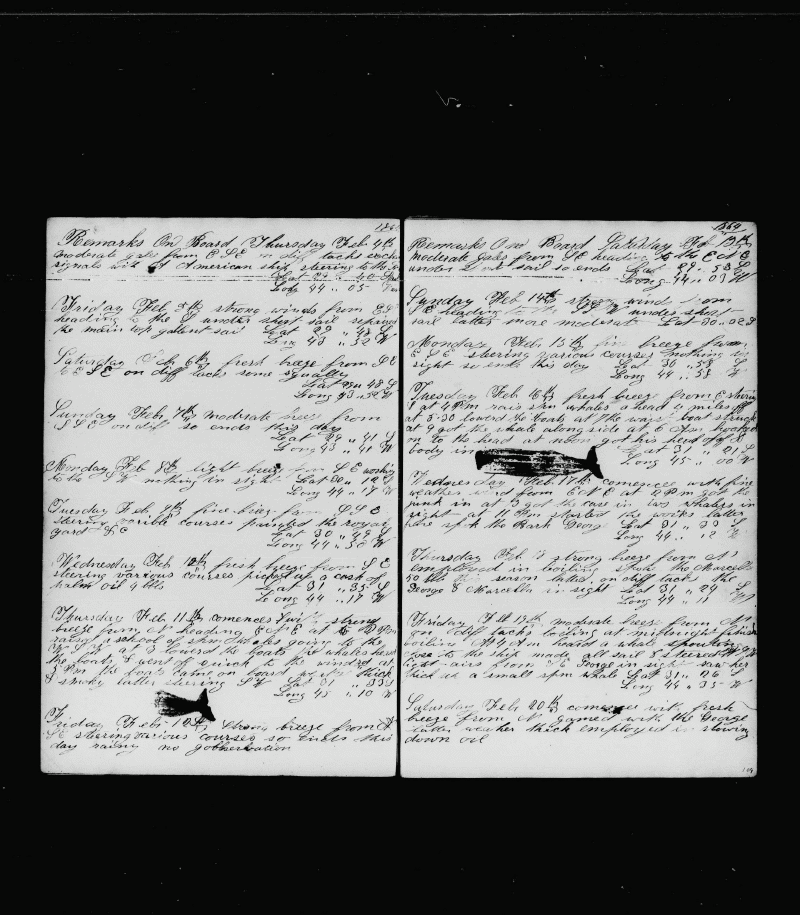 186
Remarks On Board Thursday Feb 4th
moderate gales from E S E on diff tacks exch
signals with a American ship steering to the
Lat 29 " 40 S
Long 44 " 05
Friday Feb 5th strong winds from E S E
heading to the S under short sail repairing
the main top gallent sail Lat 29 " 43 S
Long 43 " 52 W
Saturday Feb 6th fresh breeze from S E
to E S E on diff tacks some squally
Lat 30 " 48 S
Long 43 " 52 W
Sunday Feb 7th moderate breeze from
S S E on diff so ends this day
Lat 29 " 41 S
Long 43 " 41 W
Monday Feb 8th light breeze from S E working
to the nothing in sight Lat 30 " 12 S
Long 44 " 17 W
Tuesday Feb 9th fine breeze from S S E
steering varible courses the royal
yard &c Lat 30 " 49 S
Long 44 " 30 W
Wednesday Feb 10th fresh breeze from S E
steering various courses picked up a cask of
palm oil 4 bbls Lat 31 " 35 S
Long 44 " 17 W
Thursday Feb 11th comences with strong
breeze from N heading E N E at P M
raised a school of spm whales going to the
W S W at 3 lowerd the boats for whales heard
the boats & went of quick to the windrd at
P M the boats came on board weather thick
& smoky latter steering S W Lat 31 " 33 S
Long 45 " 10 W
Friday Feb 12th strong breeze from N
S E steering various courses so ends this
day rainy no gobservation
1869
Remarks On Board Saturday Feb 13th
moderate gales from S E heading to the E N E
under sail so ends Lat 29 " 53 S
Long 44 " 03 W
Sunday Feb 14th strong wind from
S E heading to the S S W under short
sail latter more moderate Lat 30 " 02 S
Monday Feb 15th fine breeze from
E S E steering various courses nothing in
sight so ends this day Lat 30 " 58
Long 44 " 53 W
Tuesday Feb 16th fresh breeze from E steering
at 4 P M rais spm whales ahead 4 miles off
at 5-30 lowerd the boats at the waist boat struck
at 9 got the whale along side at 6 A m hooked
on to the head at noon got his head off &
body in Lat 31 " 21 S
Long 45 " 00 W
Wednesday Feb 17th comences with fine
weather wind from E N E at 2 P m got the
junk in at 3 got the case in two whalers in
sight at 11 P m started the works latter
part spok the Bark George Lat 31 " 39 S
Long 44 " 12 W
Thursday Feb 18 strong breeze from N
employed in boiling spok the Marcella
50 bbls season latter on diff tacks the
George & Marcella in sight Lat 31 " 24 S
Long 44 " 11 W
Friday Feb 19th moderate breeze from N
on diff tacks boiling at midnight finish
boiling at 4 A m heard a whale spouting
close to the ship made all sail & steered W S W
light airs from S E George in sight saw her
pick up a small spm whale Lat 31 " 26 S
Long 44 " 35 W
Saturday Feb 20th comences with fresh
breeze from N Gamed with the George
latter weather thick employed in stowing
down oil